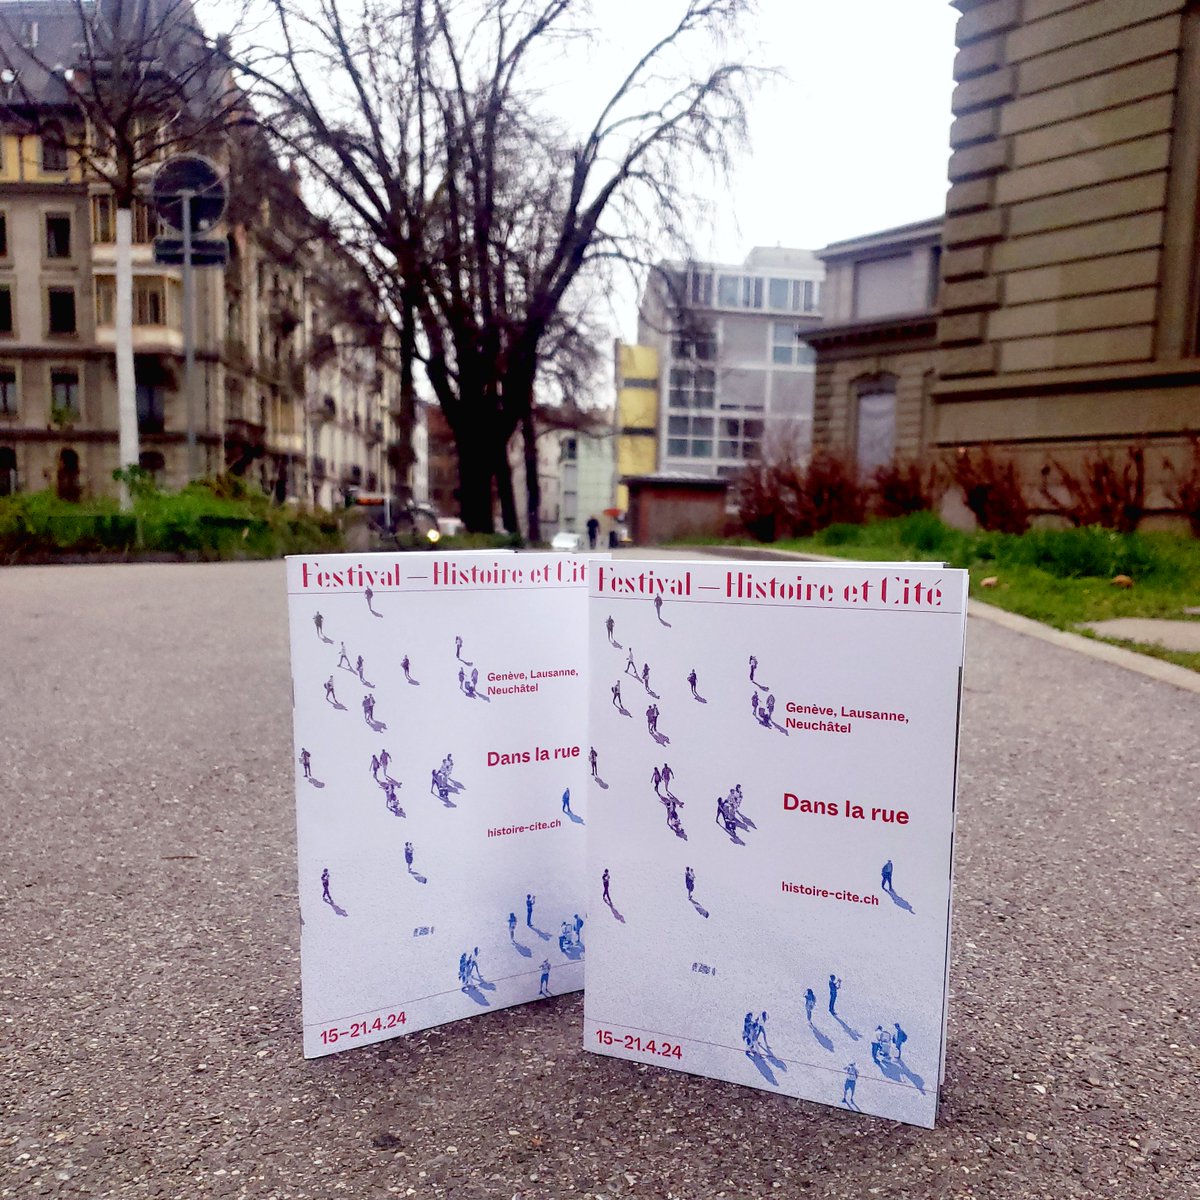 Festival — Histoire et Cit
Genève, Lausanne,
Neuchâtel
Dans la rue
histoire-cite.ch
15–21.4.24
Festival — Histoire et Cité
Genève, Lausanne,
Neuchâtel
Dans la rue
histoire-cite.ch
15–21.4.24